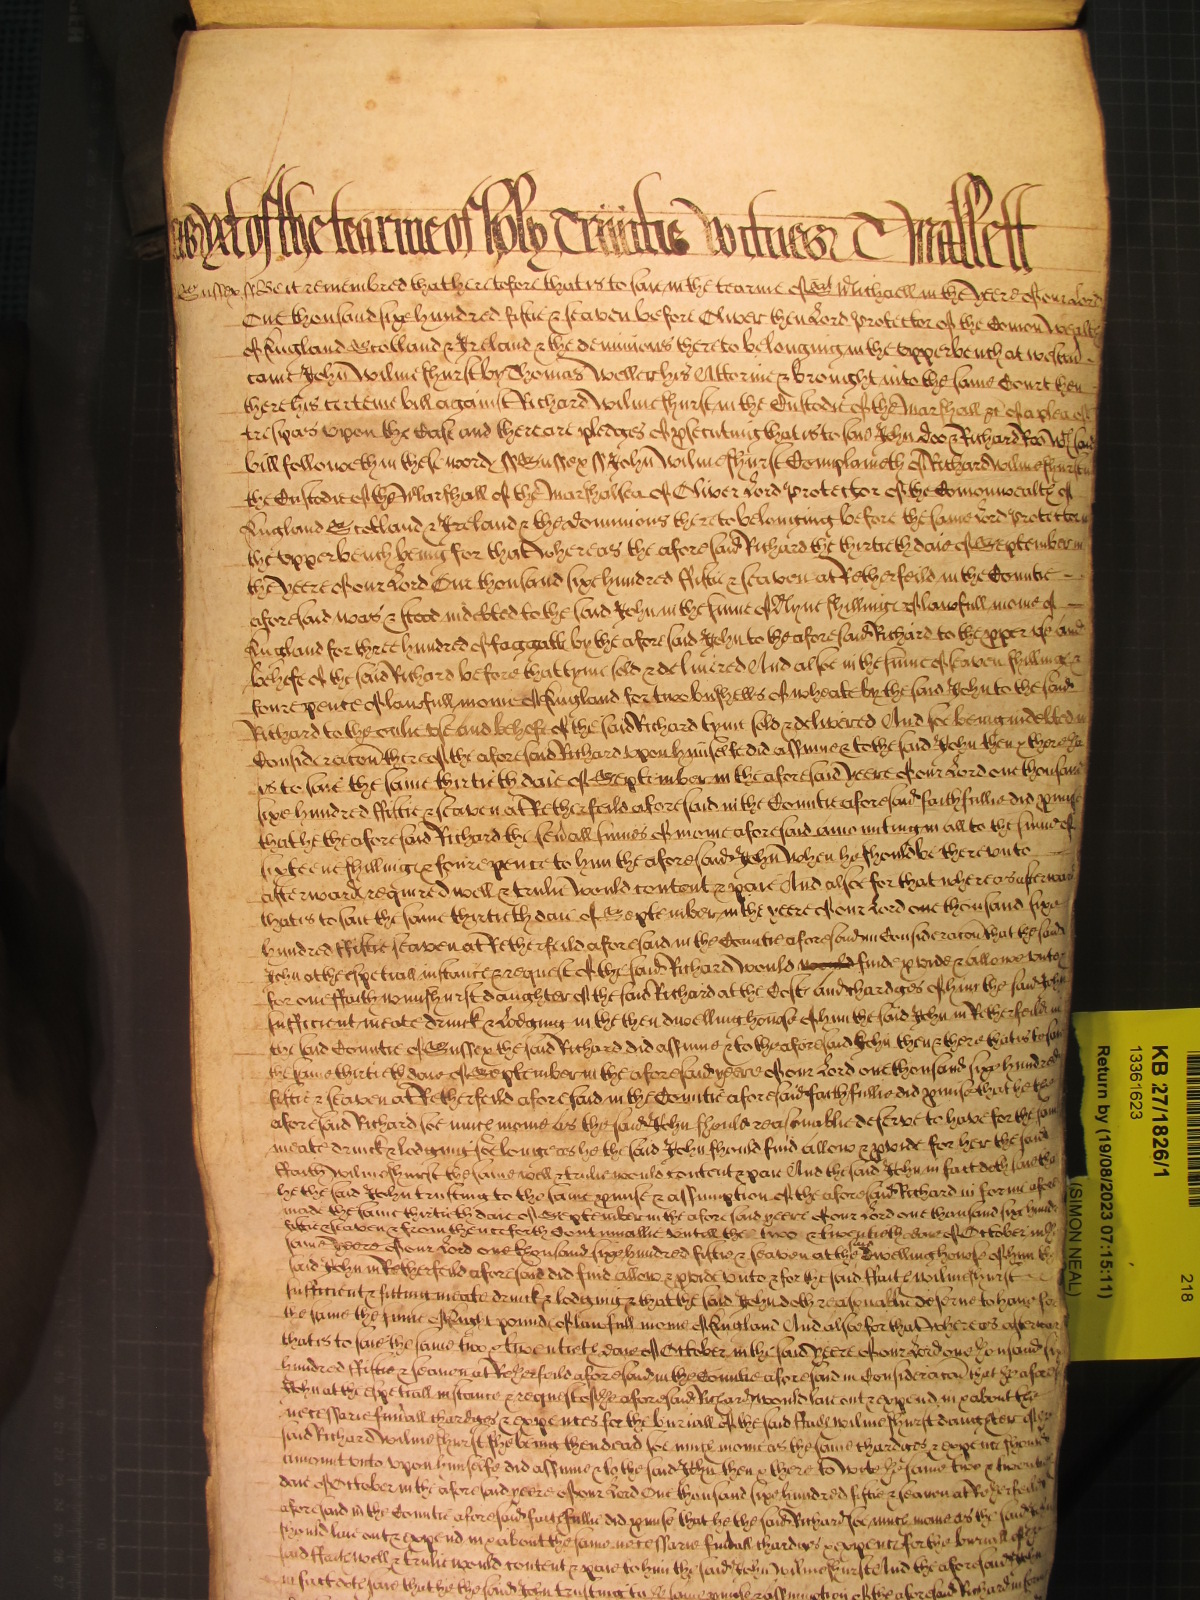 as yet of the tearme of Holy Trinitie Witness T Mallett
Sussex ss Be it remembred that heretofore that is to saie in the tearme of St Michaell in the yeere of our Lord
One thousand sixe hundred fiftie & seaven before Oliver then Lord Protector of the Comon wealth
of England Scotland & Ireland & the dominions thereto belonging in the upper bench at Westm
came John Wilmeshurst by Thomas Weller his Attornie & brought into the same Court then
there his certeine bill against Richard Wilmeshurst in the Custodie of the Marshall &c of a plea of
trespas upon the Case and there are pledges of psecuting that is to saie John Doo & Richard Roo Wch said
bill followeth in these words ss Sussex ss John Wilmeshurst Complaineth of Richard Wilmeshurst in
the Custodie of the Marshall of the Marshalsea of Oliver Lord Protector of the Comonwealth of
England Scotland & Ireland & the dominions thereto belonging before the same Lord Protector in
the upper bench being for that whereas the aforesaid Richard the thirtieth daie of September in
the yeere of our Lord One thousand sixe hundred fiftie & seaven at Retherfeild in the Countie
aforesaid was & stood indebted to the said John in the sume of Nyne shillings of lawfull monie of
England for three hundred of faggotts by the aforesaid John to the aforesaid Richard to the pper use and
behofe of the said Richard before that tyme sold & delivered And alsoe in the sume of seaven shillings &
foure pence of lawfull monie of England for two bushells of wheate by the said John to the said
Richard to the like use and behofe of the said Richard tyme sold & delivered And soe being indebted in
Consideracon thereof the aforesaid Richard upon himselfe did assume & to the said John then & there that
is to saie the same thirtieth daie of September in the aforesaid yeere of our Lord one thousand
sixe hundred fiftie & seaven at Retherfeild aforesaid in the Countie aforesaid faithfullie did pmise
that he the aforesaid Richard the sevall sumes of monie aforesaid amounting in all to the sume of
sixteene shillings & foure pence to him the aforesaid John when he should be thereunto
afterwards required well & trulie would content & paie And alsoe for that whereas afterwards
that is to saie the same thirtieth daie of September in the yeere of our Lord one thousand sixe
hundred fiftie seaven at Retherfeild aforesaid in the Countie aforesaid in Consideracon that the said
John at the espetiall instance & request of the said Richard would finde pvide & allowe unto
for one Faith Wilmshurst daughter of the said Richard at the Costs and chardges of him the said John
sufficient meate drinck & Lodging in the then dwelling house of him the said John in Retherfeild in
the said Countie of Sussex the said Richard did assume & to the aforesaid John then & there that is to saie
the same thirtieth daie of September in the aforesaid yeere of our Lord one thousand sixe hundred
fiftie & seaven at Retherfeild aforesaid in the Countie aforesaid faithfullie did pmise that he the
aforesaid Richard soe much monie as the said John should reasonablie deserve to have for the said
meate drinck & lodging soe longe as he the said John should find allow & pvide for her the said
Faith Wilmeshurst the same well & trulie would content & paie And the said John in fact doth saie that
he the said John trusting to the same pmise & assumption of the aforesaid Richard in forme afores
made the same thirtieth daie of September in the aforesaid yeere of our Lord one thousand sixe hundred
fiftie & seaven & from thenceforth Continuallie untill the two & twentieth daie of October in the
same yeere of our Lord one thousand sixe hundred fiftie & seaven at the said dwelling house of him the
said John in Retherfeild aforesaid did find allow & pvide unto & for the said Faith Wilmeshurst
sufficient & fitting meate drinck & lodging & that the said John doth reasonablie deserve to have for
the same the sume of Eight pounds of lawfull monie of England And alsoe for that whereas afterwards
that is to saie the same two & twentieth daie of October in the said yeere of our Lord one thousand six
hundred fiftie & seaven at Retherfeild aforesaid in the Countie aforesaid in Consideracon that the aforesaid
John at the espetiall instance & request of the aforesaid Richard would laie out & expend in & about the
necessarie funerall chardges & expences for the buriall of the said Faith Wilmeshurst daughter of the
said Richard Wilmeshurst she being then dead soe much monie as the same chardges & expences should
amount unto upon himselfe did assume & to the said John then & there to witt the same two & twentieth
daie of October in the aforesaid yeere of our Lord One thousand sixe hundred fiftie & seaven at Retherfeild
aforesaid in the Countie aforesaid faithfullie did pmise that he the said Richard soe much monie as the said John
should laie out & expend in & about the same necessarie funerall chardges & expences for the buriall of the
said Faith well & trulie would content & paie to him the said John Wilmeshurst And the aforesaid John
in fact doth saie that he the said John trusting to the same pmise & assumption of the aforesaid Richard in forme
KB 27/1826/1
13361623
Return by (19/08/2023 07:15:11)
(SIMON NEAL)
218